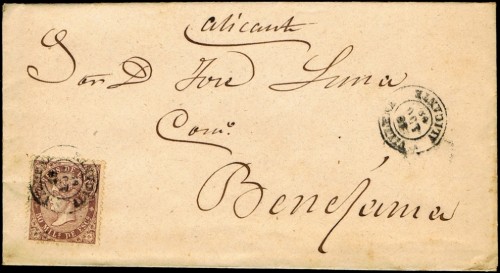 Alicante
Son D José Luna
Com.º
Benejama
ALICANTE
50 MILS DE ESC